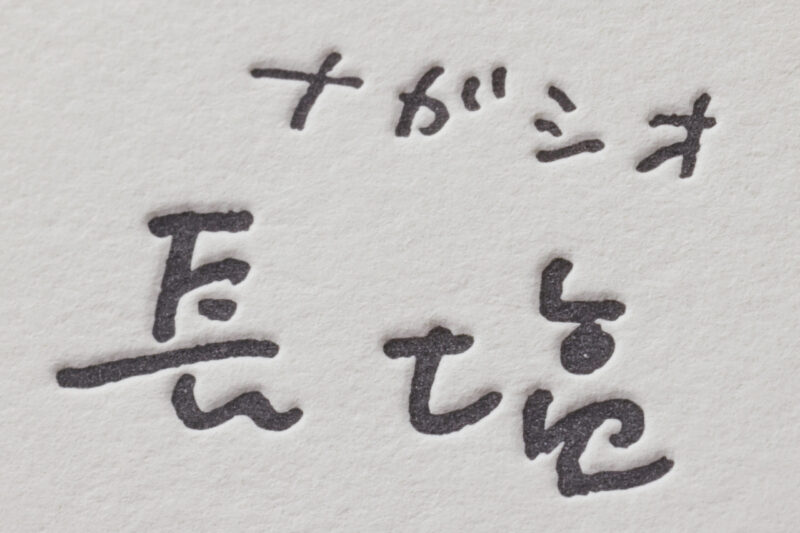 ナガシオ
長塩